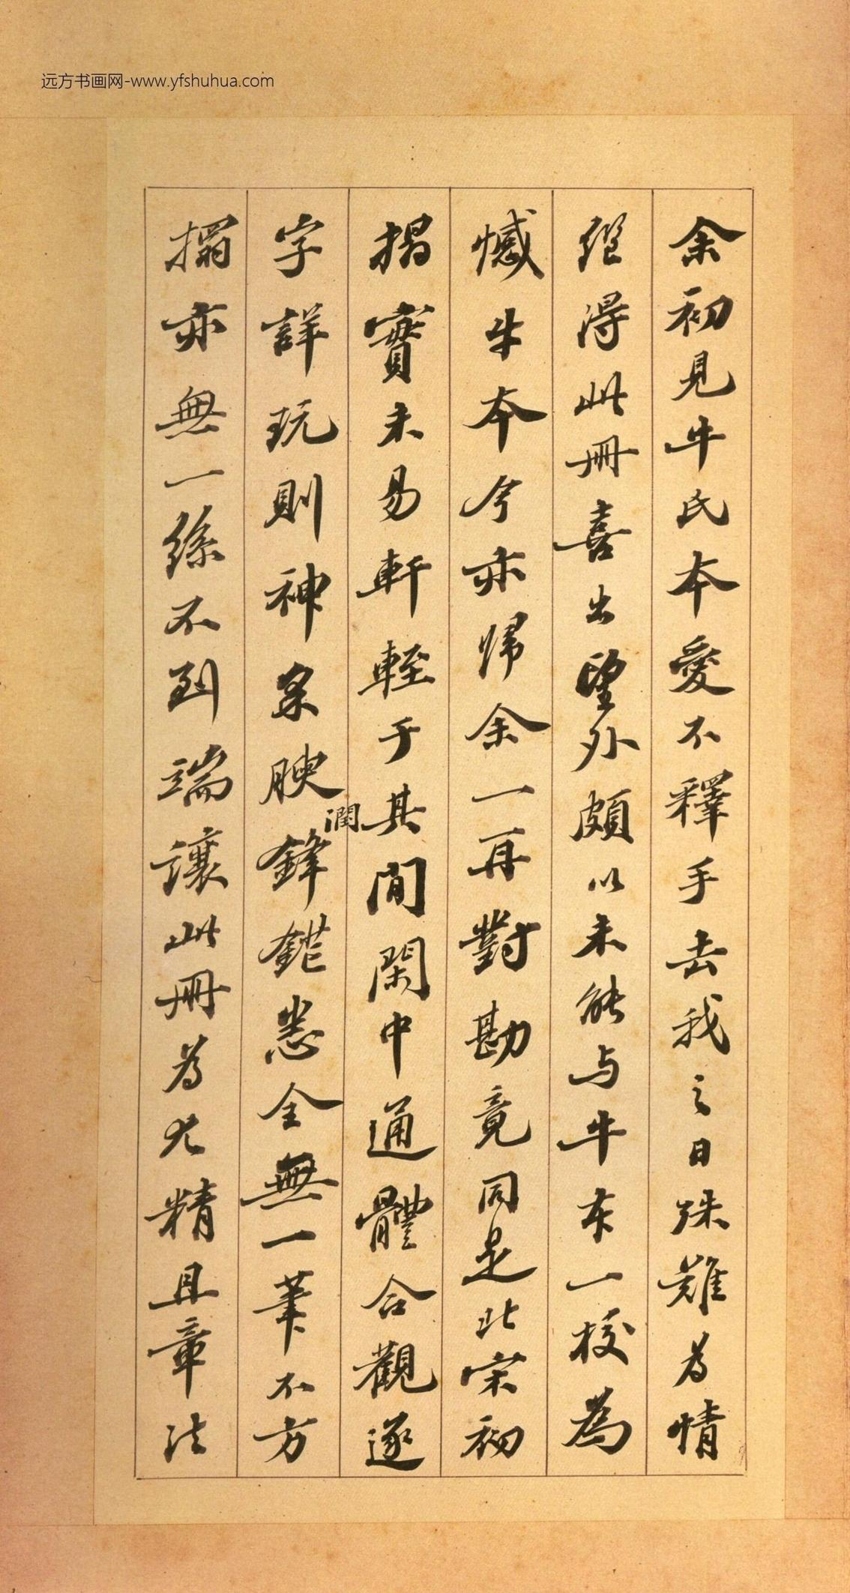 远方书画网-www.yfshuhua.com
余初見牛氏本愛不釋手去我之日殊難為情
继得此册喜出望外頗以未能与牛本一校為
憾牛本今亦歸余一再對勘竟同是北宋初
搨實未易軒輊于其間閑中通體合觀逐
字詳玩則神采腴潤鋒鋩悉全無一筆不方
搨亦無一絲不到端讓此册為尤精且章法